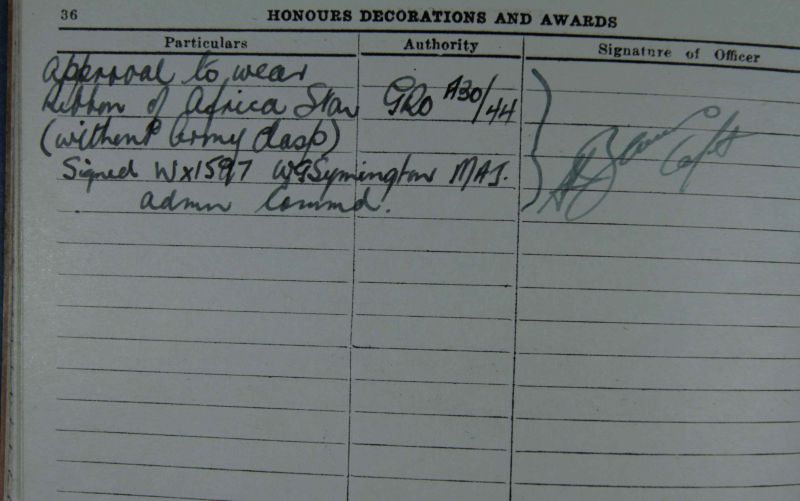 36
HONOURS DECORATIONS AND AWARDS
Particulars Authority Signature of Officer
Approval to wear
Ribbon of Africa Star GRO A30/44
(without Army Clasp)
Signed WX1597 WGSymington MAJ.
Admn Commd.
Capt